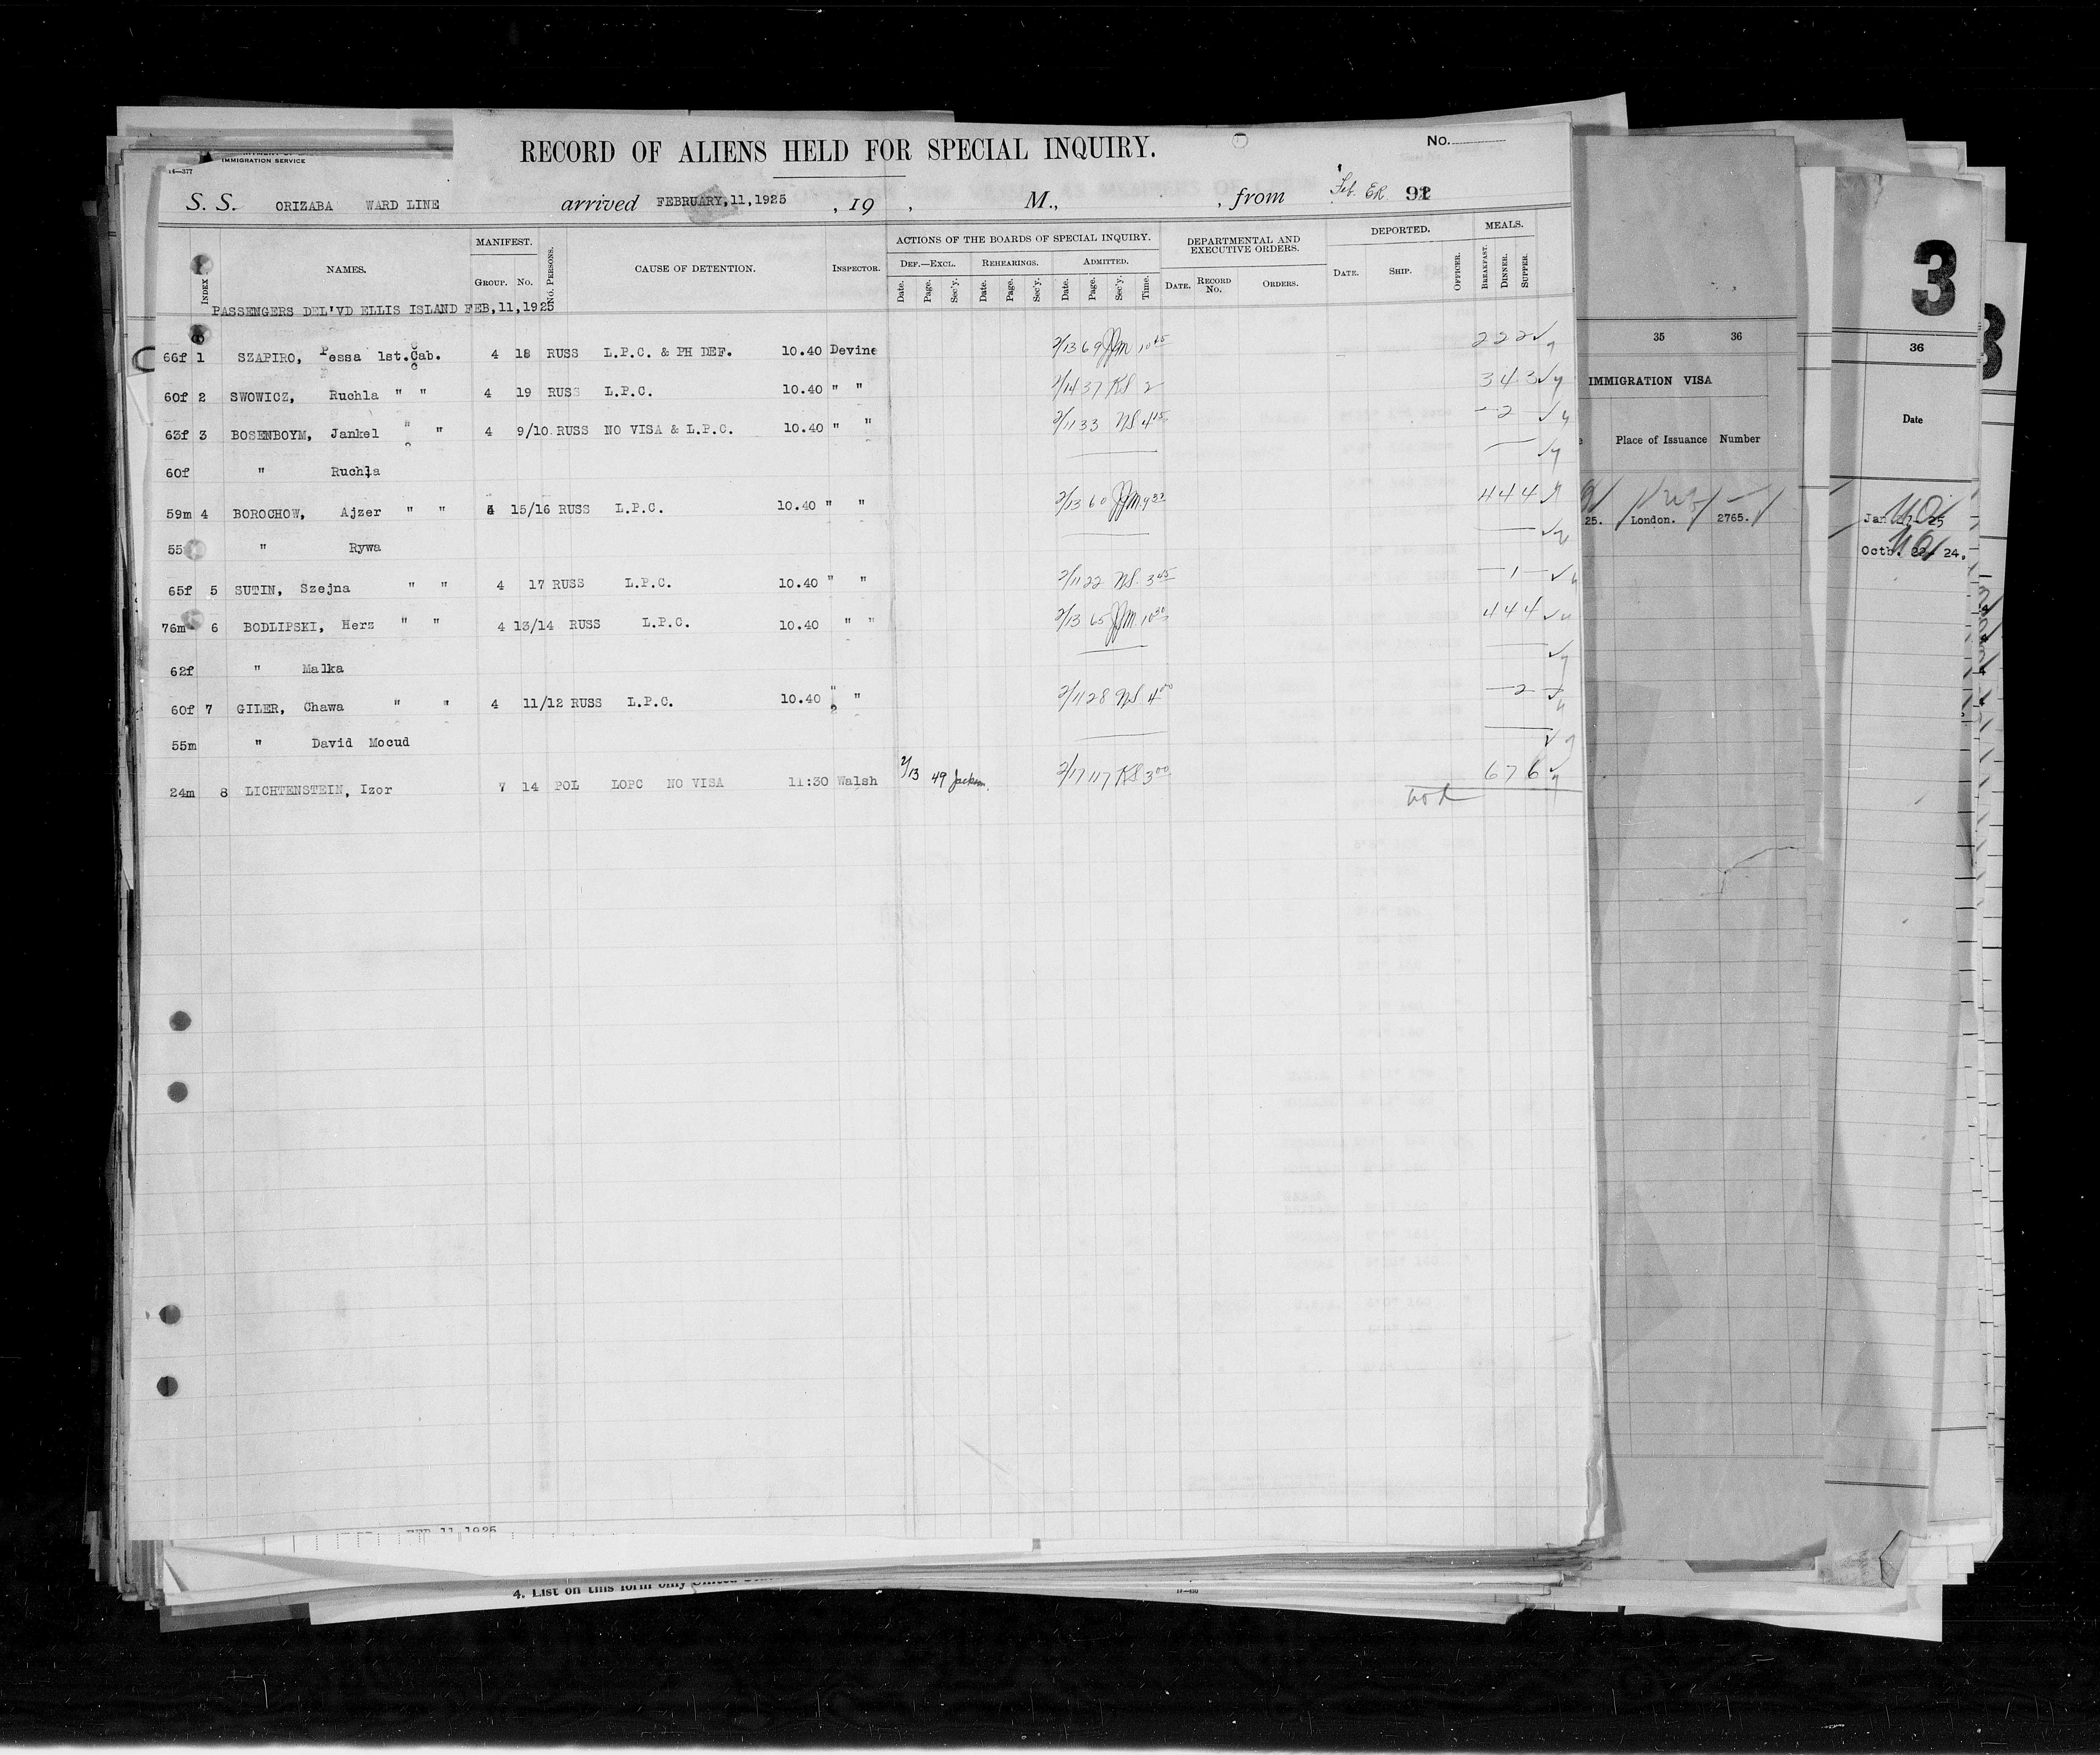 IMMIGRATION SERVICE
14—377
RECORD OF ALIENS HELD FOR SPECIAL INQUIRY.
No.
S. S. ORIZABA WARD LINE arrived FEBRUARY,11,1925 , 19 , M., , from Feb. ER 92
INDEX NAMES. MANIFEST. GROUP. NO. No. PERSONS. CAUSE OF DETENTION. INSPECTOR. ACTIONS OF THE BOARDS OF SPECIAL INQUIRY. DEF.—EXCL. REHEARINGS. ADMITTED. DEPARTMENTAL AND EXECUTIVE ORDERS. DEPORTED. MEALS.
Date. Page. Sec'y. Date. Page. Sec'y. Date. Page. Sec'y. Time. DATE. RECORD No. ORDERS. DATE. SHIP. OFFICER. BREAKFAST. DINNER. SUPPER.
PASSENGERS DEL'VD ELLIS ISLAND FEB,11,1925
66f 1 SZAPIRO, Pessa 1st.Cab. 4 18 RUSS L.P.C. & PH DEF. 10.40 Devine 2/13 69 JJM 10 45 2 2 2
60f 2 SWOWICZ, Ruchla " " 4 19 RUSS L.P.C. 10.40 " " 2/14 37 KS 2 3 4 3
63f 3 BOSENBOYM, Jankel " " 4 9/10 RUSS NO VISA & L.P.C. 10.40 " " 2/11 33 NS 4 15 — 2 —
60f " Ruchla
59m 4 BOROCHOW, Ajzer " " 4 15/16 RUSS L.P.C. 10.40 " " 2/13 60 JJM 9 30 4 4 4
55 " Rywa
65f 5 SUTIN, Szejna " " 4 17 RUSS L.P.C. 10.40 " " 2/11 22 NS. 3 45 — 1 —
76m 6 BODLIPSKI, Herz " " 4 13/14 RUSS L.P.C. 10.40 " " 2/13 65 JJM 10 30 4 4 4
62f " Malka
60f 7 GILER, Chawa " " 4 11/12 RUSS L.P.C. 10.40 " " 2/11 28 NS 4 00 — 2 —
55m " David Mocud
24m 8 LICHTENSTEIN, Izor 7 14 POL LOPC NO VISA 11:30 Walsh 2/13 49 Jackson. 2/17 117 KS 3 00 6 7 6
35 36
IMMIGRATION VISA
Place of Issuance Number
25. London. 2765.
3
36
Date
Jan 25
Octb. 22 24.
FEB 11 1925
4. List on this form only United